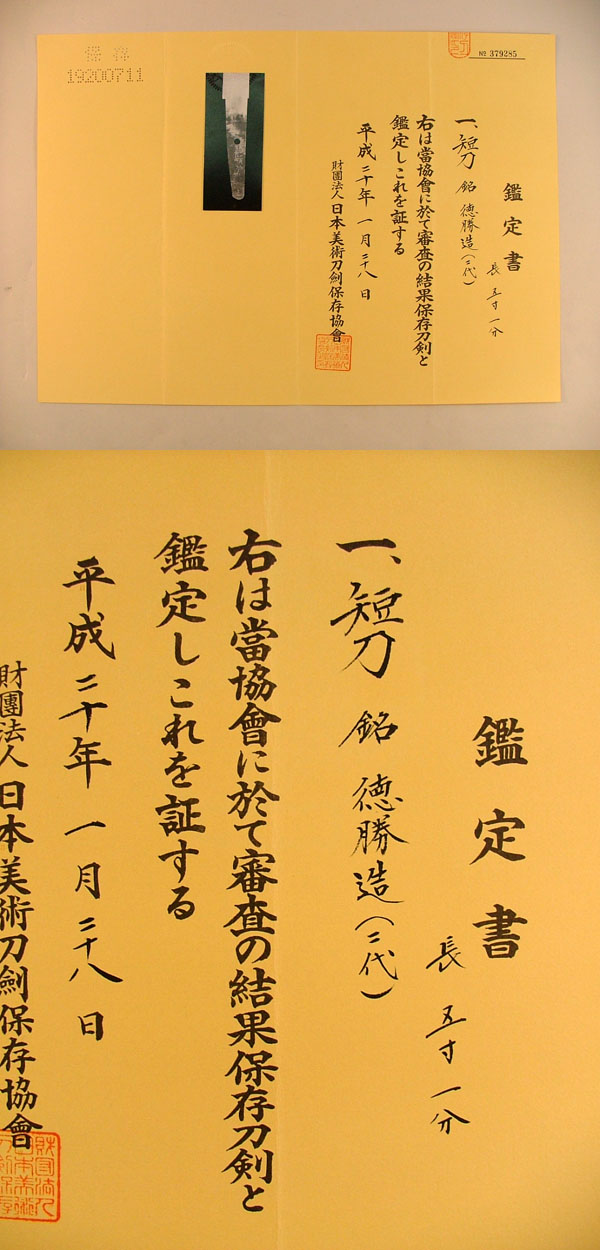 № 379285
保存
19200711
鑑定書
一、短刀 銘 徳勝造(二代)
長 五寸一分
右は當協會に於て審査の結果保存刀剣と
鑑定しこれを証する
平成二十年 一月二十八日
財團法人 日本美術刀劍保存協會
鑑定書
一、短刀 銘 徳勝造(二代)
長 五寸一分
右は當協會に於て審査の結果保存刀剣と
鑑定しこれを証する
平成二十年 一月二十八日
財團法人 日本美術刀劍保存協會